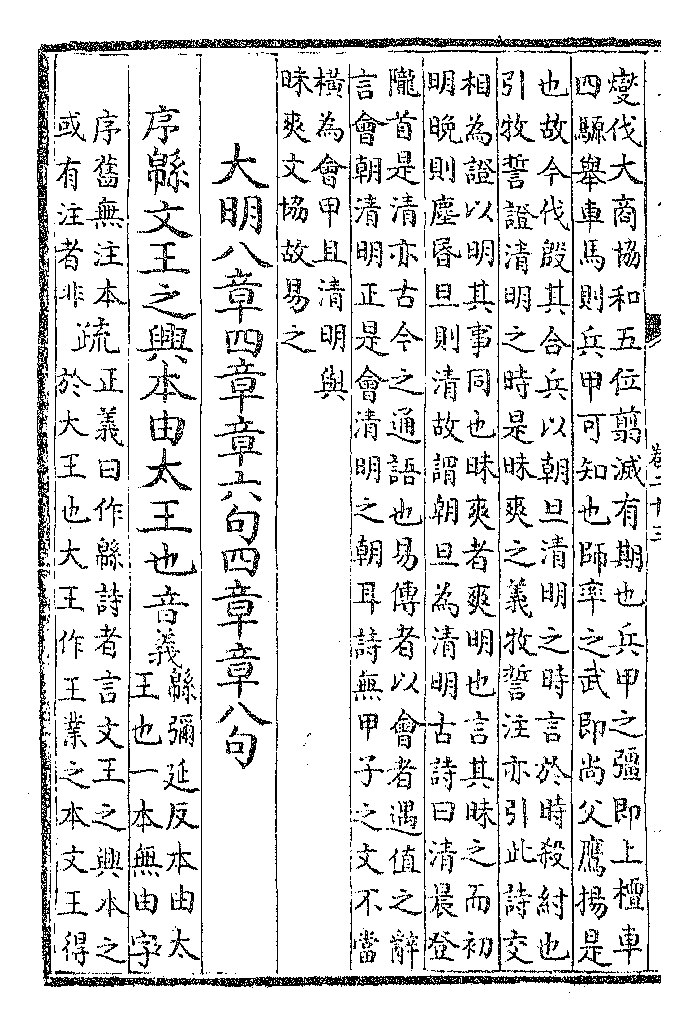 卷二十三
燮伐大商協和五位翦滅有期也兵甲之彊即上檀車
四騵舉車馬則兵甲可知也師率之武即尚父鷹揚是
也故今伐殷其合兵以朝旦清明之時言於時殺紂也
引牧誓證清明之時是昧爽之義牧誓注亦引此詩交
相為證以明其事同也昧爽者爽明也言其昧之而初
明晚則塵昏旦則清故謂朝旦為清明古詩曰清晨登
隴首是清亦古今之通語也易傳者以會者遇值之辭
言會朝清明正是會清明之朝耳詩無甲子之文不當
橫為會甲且清明與
昧爽文協故易之
大明八章四章章六句四章章八句
序緜文王之興本由太王也音義
緜彌延反本由太
王也一本無由字
序舊無注本
或有注者非
疏
正義曰作緜詩者言文王之興本之
於大王也大王作王業之本文王得